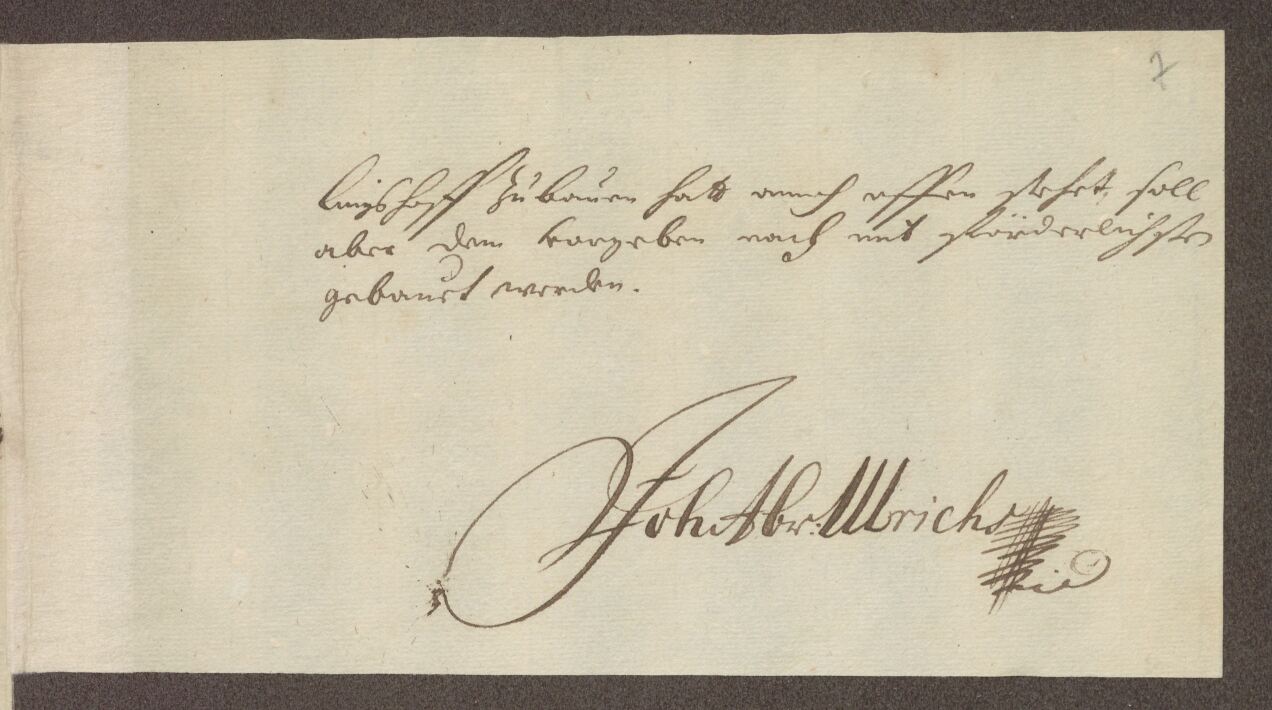 7
lingshoff zubauen hatt annoch offen stehet, soll
aber dem vorgeben nach mit förderlichsten
gebauet werden.
Joh. Abr: Ullrichs